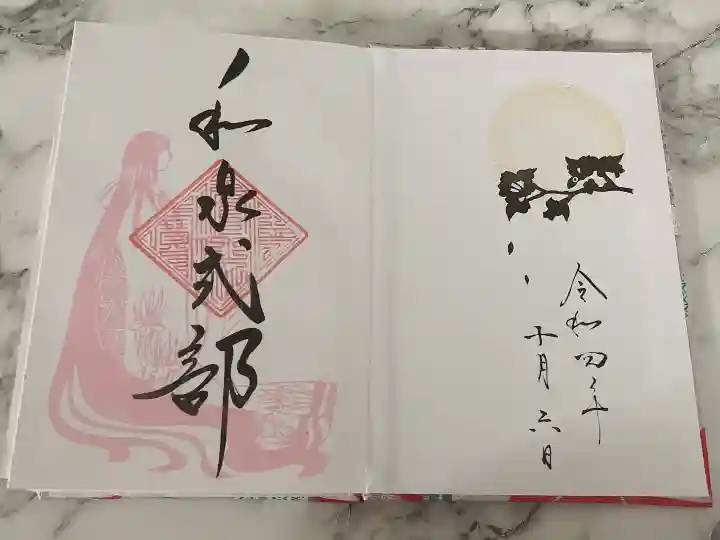 和泉式部
令和四年
十月六日